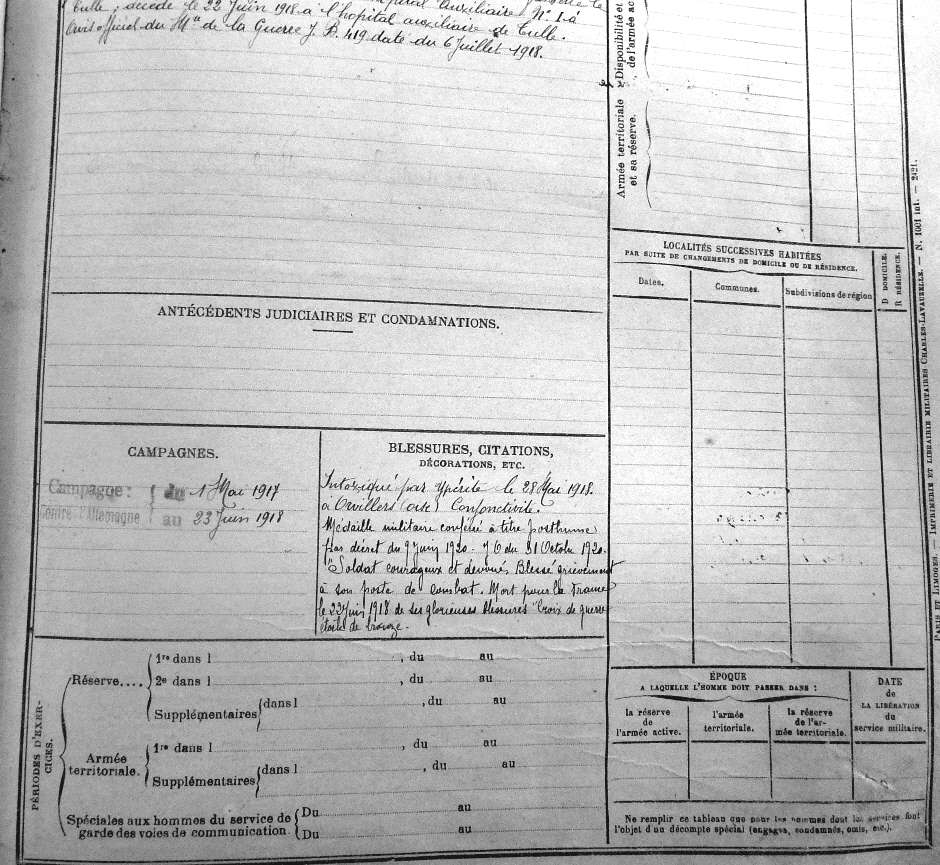 auxiliaire N° 12
Tulle, décédé le 22 Juin 1918 à l'hopital auxiliaire de Tulle.
Avis officiel du Mre de la Guerre J. B. 419 daté du 6 Juillet 1918.
Disponibilité et
de l'armée ac
Armée territoriale
et sa réserve.
ANTÉCÉDENTS JUDICIAIRES ET CONDAMNATIONS.
CAMPAGNES.
Campagne : { du 1 Mai 1917
contre l'Allemagne { au 23 Juin 1918
BLESSURES, CITATIONS,
DÉCORATIONS, ETC.
Intoxiqué par ypérite le 28 Mai 1918.
à Orvillers (oise) Conjonctivite.
Médaille militaire conféré à titre posthume
par décret du 9 juin 1920. J O du 31 Octobre 1920.
"Soldat courageux et dévoués Blessé grièvement
à son poste de combat. Mort pour la France
le 22 Juin 1918 de ses glorieuses blessures" Croix de guerre
étoile de bronze.
LOCALITÉS SUCCESSIVES HABITÉES
PAR SUITE DE CHANGEMENTS DE DOMICILE OU DE RÉSIDENCE.
Dates.
Communes.
Subdivisions de région
D DOMICILE.
R RÉSIDENCE.
PÉRIODES D'EXER-
CICES.
Réserve....
1re dans l , du au
2e dans l , du au
Supplémentaires { dans l , du au
Armée
territoriale.
1re dans l , du au
Supplémentaires { dans l , du au
Spéciales aux hommes du service de
garde des voies de communication.
Du au
Du au
ÉPOQUE
A LAQUELLE L'HOMME DOIT PASSER DANS :
la réserve
de
l'armée active.
l'armée
territoriale.
la réserve
de l'ar-
mée territoriale.
DATE
de
LA LIBÉRATION
du
service militaire.
Ne remplir ce tableau que pour les hommes dont les services font
l'objet d'un décompte spécial (engagés, condamnés, omis, etc.).
PARIS ET LIMOGES. — IMPRIMERIE ET LIBRAIRIE MILITAIRES CHARLES-LAVAUZELLE. — N. 1001 int. — 2421.